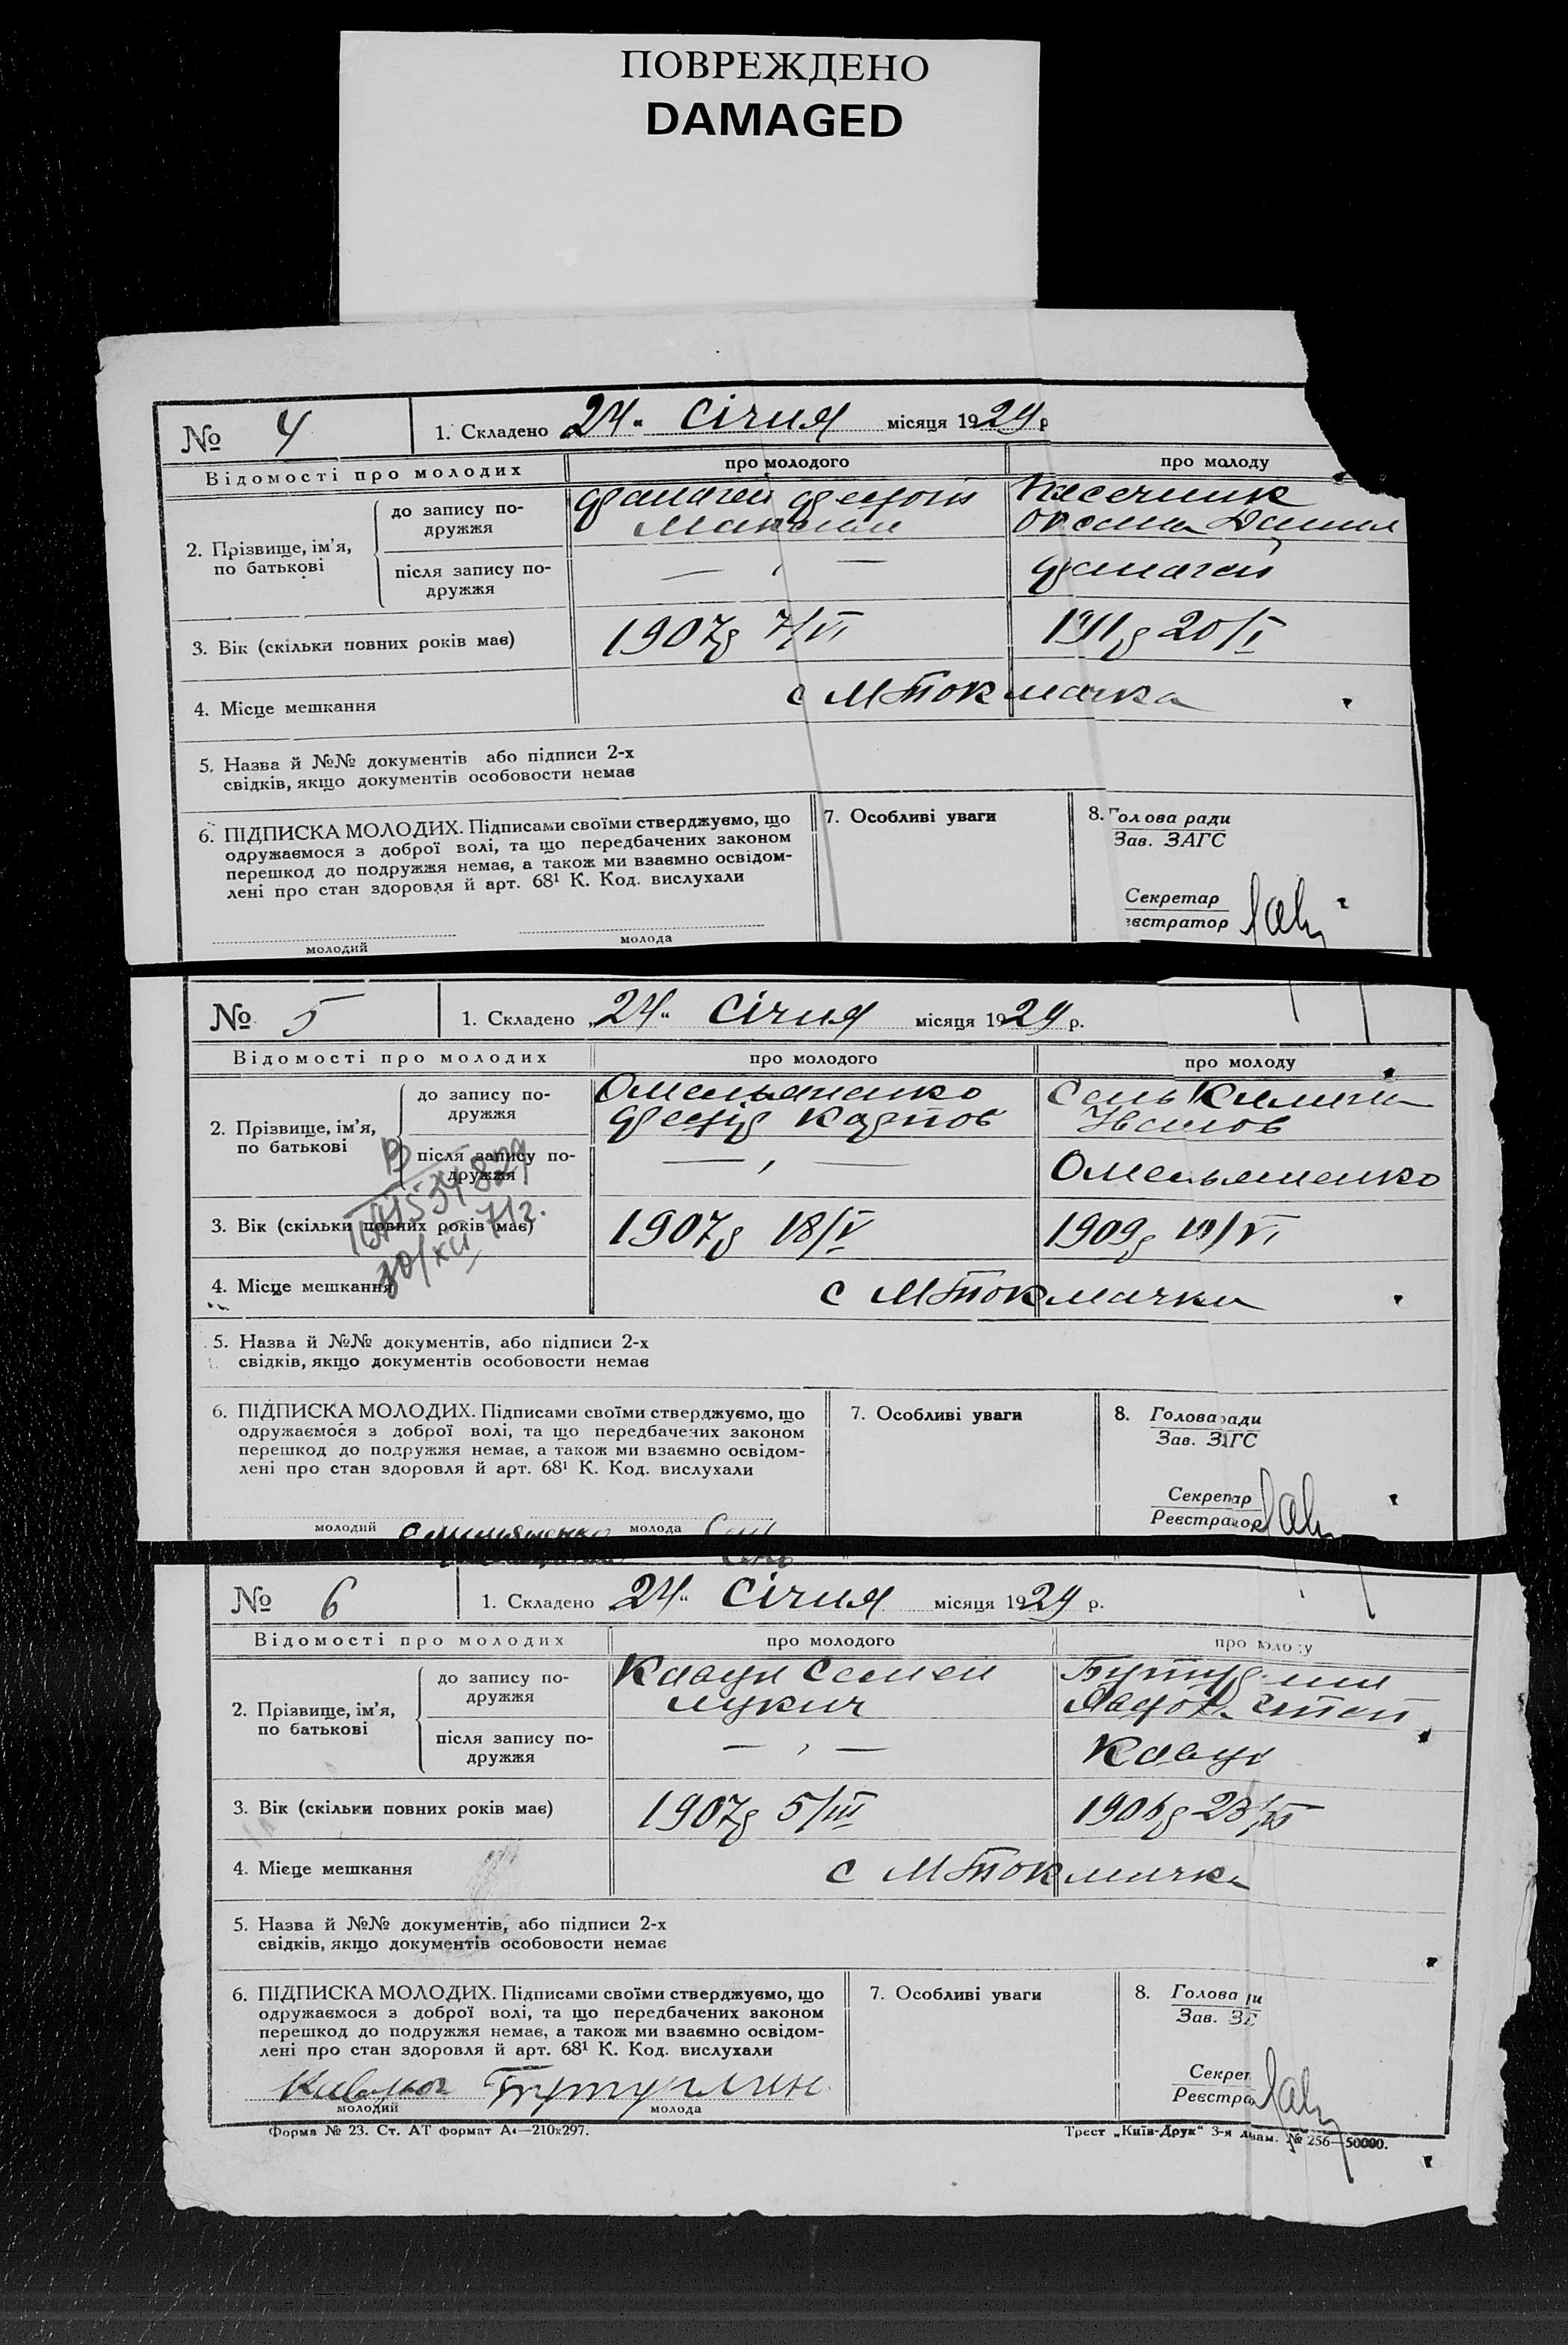 ПОВРЕЖДЕНО
DAMAGED
№ 4
1. Складено 24 „ Січня місяця 1929 р
Відомості про молодих
про молодого
про молоду
2. Прізвище, ім’я, по батькові
до запису подружжя
Пасечник
Оксана Данил
після запису подружжя
— „ —
3. Вік (скільки повних років має)
1907р 7/VI
1911р 20/I
4. Місце мешкання
с МТокмачка
5. Назва й №№ документів або підписи 2-х
свідків, якщо документів особовости немає
6. ПІДПИСКА МОЛОДИХ. Підписами своїми стверджуємо, що
одружаємося з доброї волі, та що передбачених законом
перешкод до подружжя немає, а також ми взаємно освідом-
лені про стан здоровля й арт. 68¹ К. Код. вислухали
молодий
молода
7. Особливі уваги
8. Голова ради
Зав. ЗАГС
Секретар
евстратор
№ 5
1. Складено „24“ Січня місяця 1929 р.
Відомості про молодих
про молодого
про молоду
2. Прізвище, ім’я,
по батькові
до запису по-
дружжя
Омельяненко
Федір Карпов
Сень Килина
Іванов
після запису по-
дружжя
— „ —
Омельяненко
3. Вік (скільки повних років має)
1907р 18/V
1909р /VI
30/XII 71г.
4. Місце мешкання
с МТокмачка
5. Назва й №№ документів, або підписи 2-х
свідків, якщо документів особовости немає
6. ПІДПИСКА МОЛОДИХ. Підписами своїми стверджуємо, що
одружаємося з доброї волі, та що передбачених законом
перешкод до подружжя немає, а також ми взаємно освідом-
лені про стан здоровля й арт. 68¹ К. Код. вислухали
молодий Омельяненко молода Сень
7. Особливі уваги
8. Голова ради
Зав. ЗАГС
Секретар
Реєстратор
№ 6
1. Складено 24“ Січня місяця 1929 р.
Відомості про молодих
про молодого
про молоду
2. Прізвище, ім’я,
по батькові
до запису по-
дружжя
Кавун Семен
Лукич
Степ
після запису по-
дружжя
— „ —
Кавун
3. Вік (скільки повних років має)
1907р 5/III
1906р 23/
4. Місце мешкання
с МТокмачка
5. Назва й №№ документів, або підписи 2-х
свідків, якщо документів особовости немає
6. ПІДПИСКА МОЛОДИХ. Підписами своїми стверджуємо, що
одружаємося з доброї волі, та що передбачених законом
перешкод до подружжя немає, а також ми взаємно освідом-
лені про стан здоровля й арт. 68¹ К. Код. вислухали
молодий
молода
7. Особливі уваги
8. Голова
Зав.
Секрет
Реєстра
Форма № 23. Ст. АТ формат А4—210х297.
Трест „Київ-Друк“ 3-я Зам. № 256—50000.